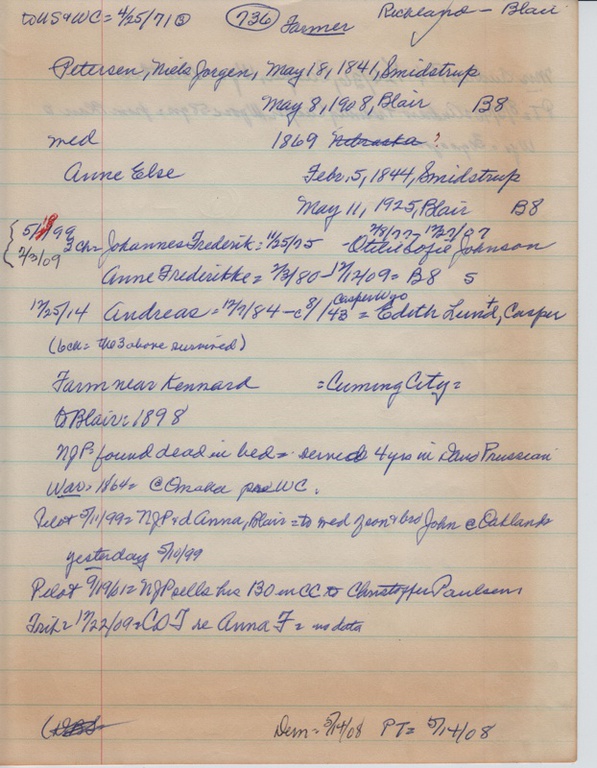 to US+WC = 4/25/71 (736) Farmer Richland - Blair
Petersen, Niels Jorgen, May 18, 1841, Smidstrup
May 8, 1908, Blair B8
med 1869 Nebraska?
Anne Else Febr. 5, 1844, Smidstrup
May 11, 1925, Blair B8
3ch= Johannes Frederik = 11/25/75 - Otilie Sofie Johnson
2/3/09 Anne Frederikke = 2/3/80 - 12/12/09 = B8 5
12/25/14 Andreas = 12/7/84 - Casper Wyo = Edith Lund, Casper
(6ch = the 3 above survived)
Farm near Kennard = Cuming City =
to Blair = 1898
NJP = found dead in bed = served 4 yrs in Dano Prussian
War = 1864 = @ Omaha WC.
Pilot 5/11/99 = NJP + d Anna, Blair = to wed of son + bro John @ Oakland
yesterday 5/10/99
Pilot 9/19/01 = NJP sells his 130 in CC to Christoffer Paulsen
Trib = 12/22/09 = COF re Anna F = no data
Dem = 5/14/08 PT = 5/14/08